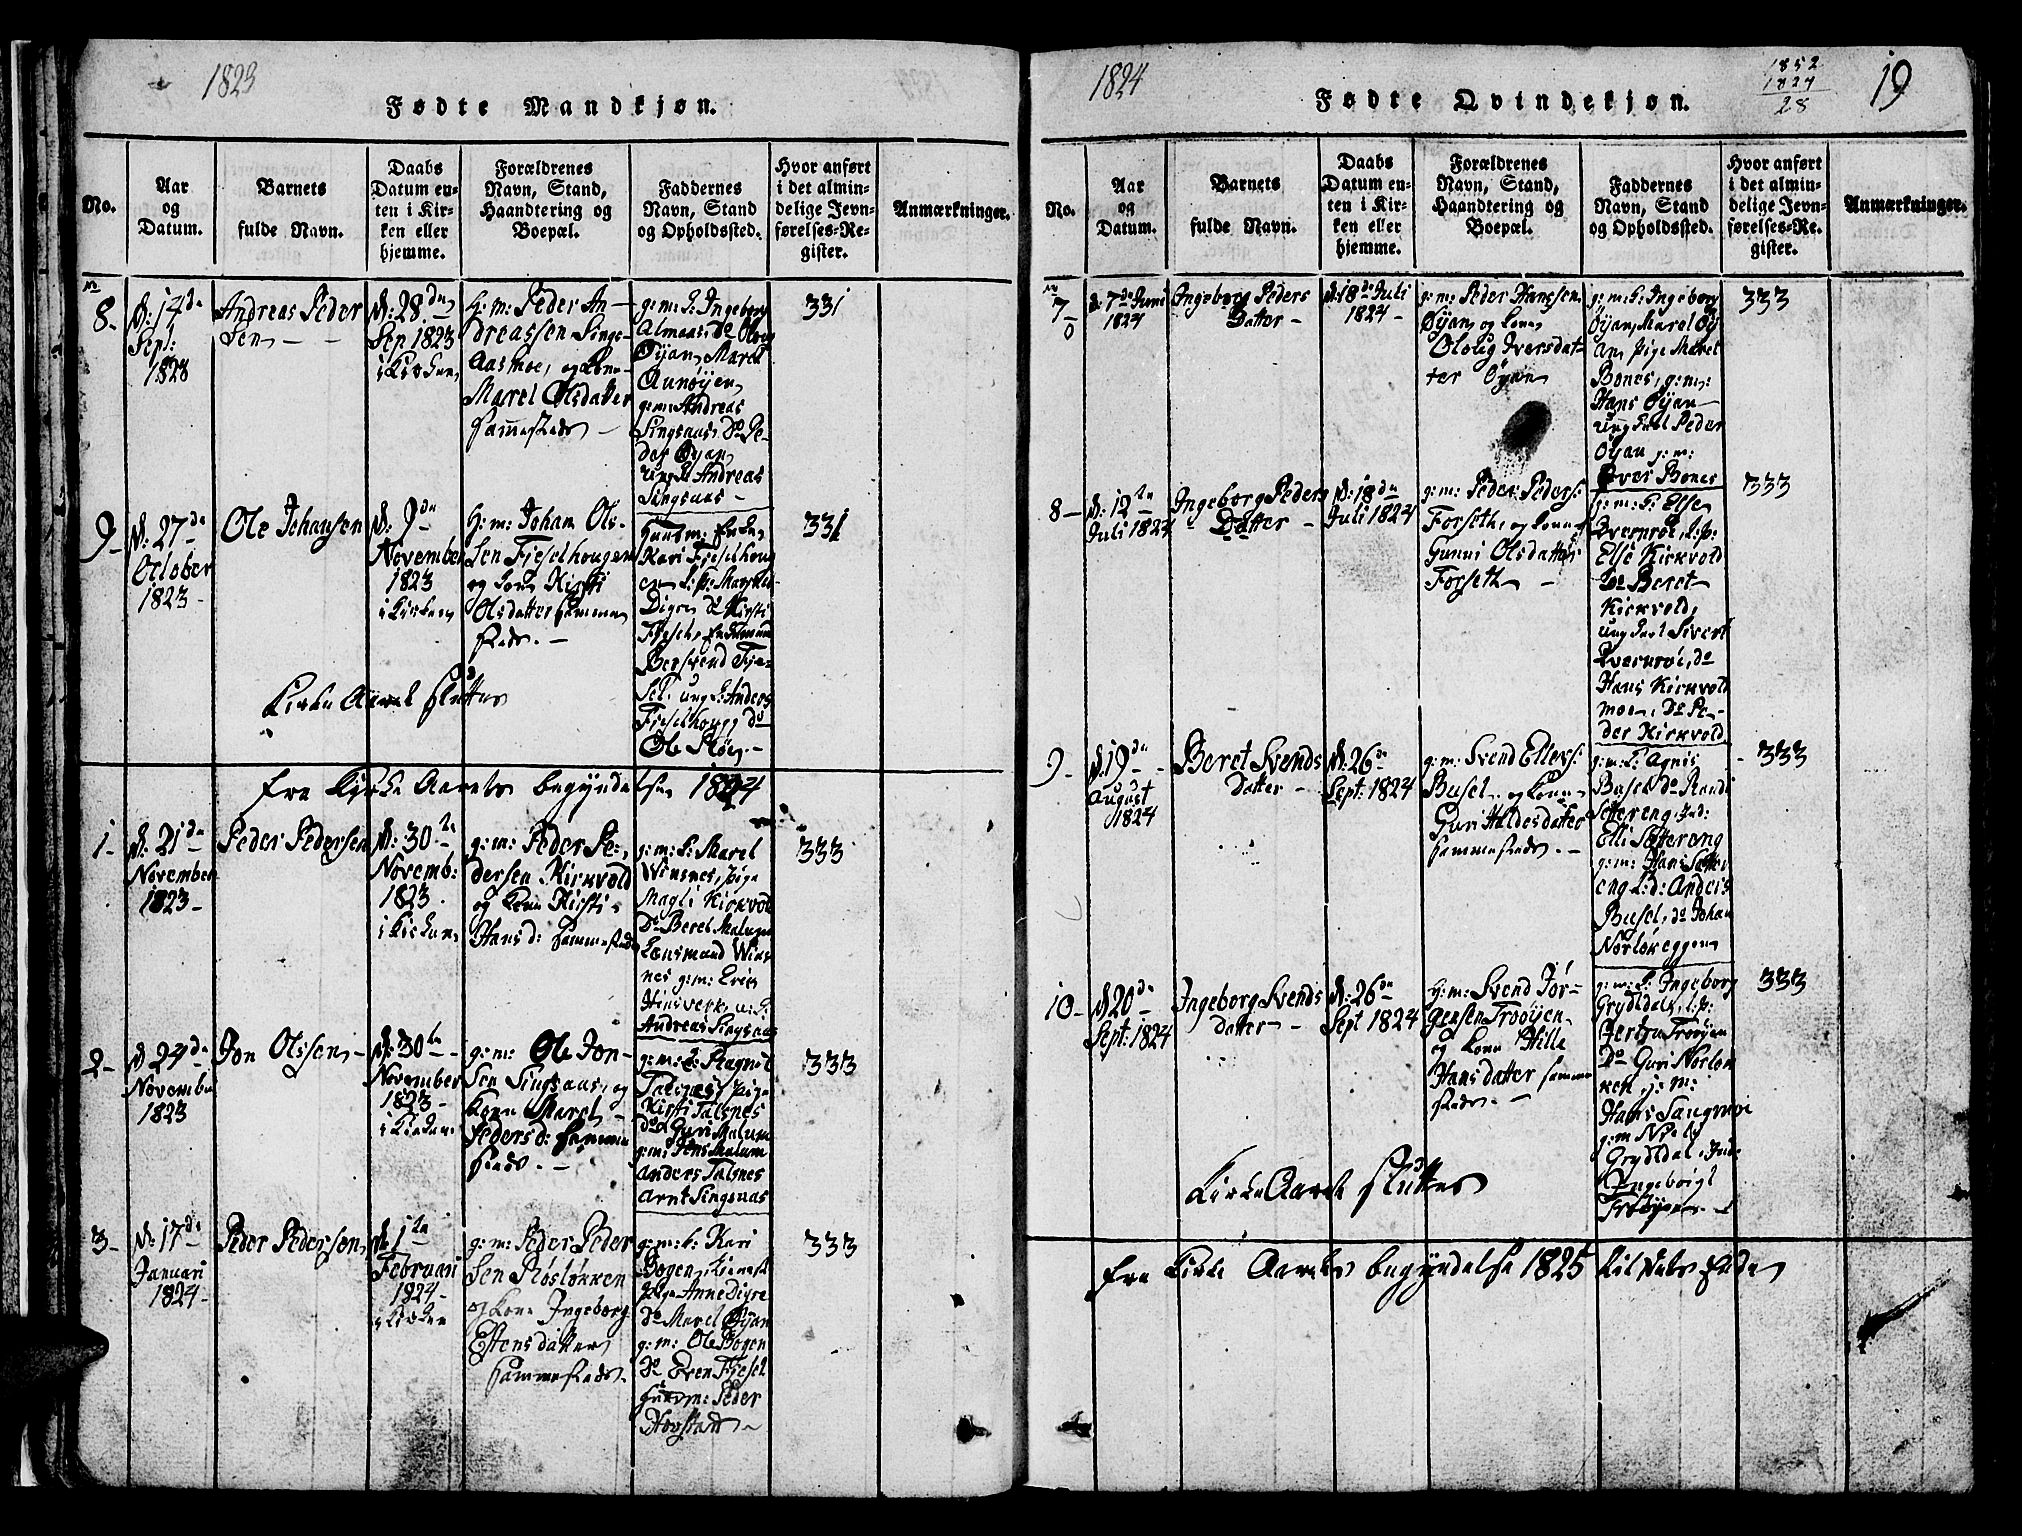 1823
Fødte Mandkjøn.
No.
Aar
og
Datum.
Barnets
fulde Navn.
Daabs
Datum en-
ten i Kir-
ken eller
hjemme.
Forældrenes
Navn, Stand,
Haandtering og
Boepæl.
Faddernes
Navn, Stand
og Opholdssted.
Hvor anført
i det almin-
delige Jevn-
førelses-Re-
gister.
Anmærkninger.
8-
d: 14de
Sept:
1823
Andreas Peder
Sen -
d: 28de
Sep 1823
i Kirken
g: m: Peder An-
dreassen Sings-
Aasmoe, og Kone
Marel Olsdatter
sammesteds -
g: m: k: Ingeborg
Almaas, do Oloug
Øyan, Marel
Aunøyen
g: m: Andreas
Singsaas, do Pe-
der Øyan
ung k: Andreas
Singsaas -
331
9-
d: 27de
October
1823-
Ole Johansen
d: 9de
November
1823
i Kirken
H: m: Johan Ols-
Sen Fjeselhougen
og kone Kirsti
Olsdatter sammen
steds. -
Huusm: Enke
Kari Fjeselhoug
en
Digre do Kirsti
Fjesel,
Bersvend Fje-
sel, ung k: Anders
Fjeselhougg do
Ole Sløe -
331
Kirke Aaret sluttes
Fra Kirke Aarets begyndelse 1824
1-
d: 21de
November
1823-
Peder Pedersen
d: 30te
Novemb:
1823.
i Kirken
g: m: Peder Pe-
dersen Kirkvold
og Kone Kirsti
Hansd: sammesteds
g: m: k: Marel
Winsnes, pige
Magli Kirkvold
do Beret Malum
Lensmand Wins
nes g: m: Erik
Hinsverk,
Andreas Singsaas
333
2-
d: 24de
November
1823
Jon Olssen -
d: 30te
November
1823-
i Kirken
g: m: Ole Jon-
Sen Singsaas, og
kone Marel
Pedersd: sammen
steds. -
g: m: k: Ragnil
Talsnes, pige
Kirsti Talsnes
do Guri Malum
g: m: Jens Malum
Anders Talsnes
Arnt Singsaas
333
3-
d: 17de
Januari
1824-
Peder Pedersen
d. 1te
Februari
1824-
i Kirken
g: m: Peder Peder
Sen Sløsløkken
og kone Ingeborg
Estensdatter
sammesteds.
g: m: k: Kari
Bogen,
pige Anne Digre
do Marel Øyan
g: m: Ole Bogen
do Even Fjesel
huusm: Peder
Hovstad -
333
1824
Fødte Qvindekjøn.
1852
1824
28
19
No.
Aar
og
Datum.
Barnets
fulde Navn.
Daabs
Datum en-
ten i Kir-
ken eller
hjemme.
Forældrenes
Navn, Stand,
Haandtering og
Boepæl.
Faddernes
Navn, Stand
og Opholdssted.
Hvor anført
i det almin-
delige Jevn-
førelses-Re-
gister.
Anmærkninger.
7-
d. 7de Juni
1824
Ingeborg Peders
Datter -
d: 18de Juli
1824 -
g: m: Peder Hanssen
Øyan, og kone
Oloug Iversdat-
ter Øyan
g: m: k: Ingeborg
Øyan, Marel Øy
an, pige Marel
Bones, g: m:
Hans Øyan -
ung karl Peder
Øyan g: m:
Iver Bones
333
8-
d: 12te
Juli 1824
Ingeborg Peders
Datter -
d: 18de
Juli 1824
g: m: Peder Peders:
Forseth, og kone
Gunni Olsdatter
Forseth -
g: m: k: Else
Kvernrøi,
Else Kirkvold
do Beret
Kirkvold,
ung karl Sivert
Kvernrøi, do
Hans Kirkvold
moe, do Pe-
der Kirkvold
333
9-
d: 19de
August
1824
Beret Svends
Datter -
d: 26de
Sept: 1824
g: m: Svend Ellevs:
Busel, og kone
Guri Haldesdatter
sammesteds. -
g: m: k: Agnis
Busel do Randi
Settereng, ind:
Elli Settereng
g: m: Hans Sætter
eng k: d: Anders
Busel, do Johan
Norløkeggen
333
10-
d 20de
Sept: 1824
Ingeborg Svends
datter -
d: 26de
Sept 1824
H: m: Svend Jør-
gensen Trøøyen
og kone Sille
Hansdatter samme
steds. -
g: m: k: Ingeborg
Gryddal,
Trøøyen
do Guri Norløk
ken g: m:
Hans Sangrøe
g: m Niels
Gryddal, Ind:
Ingebrigt
Trøøyen -
333
Kirke Aaret sluttes
Fra Kirke Aarets begyndelse 1825